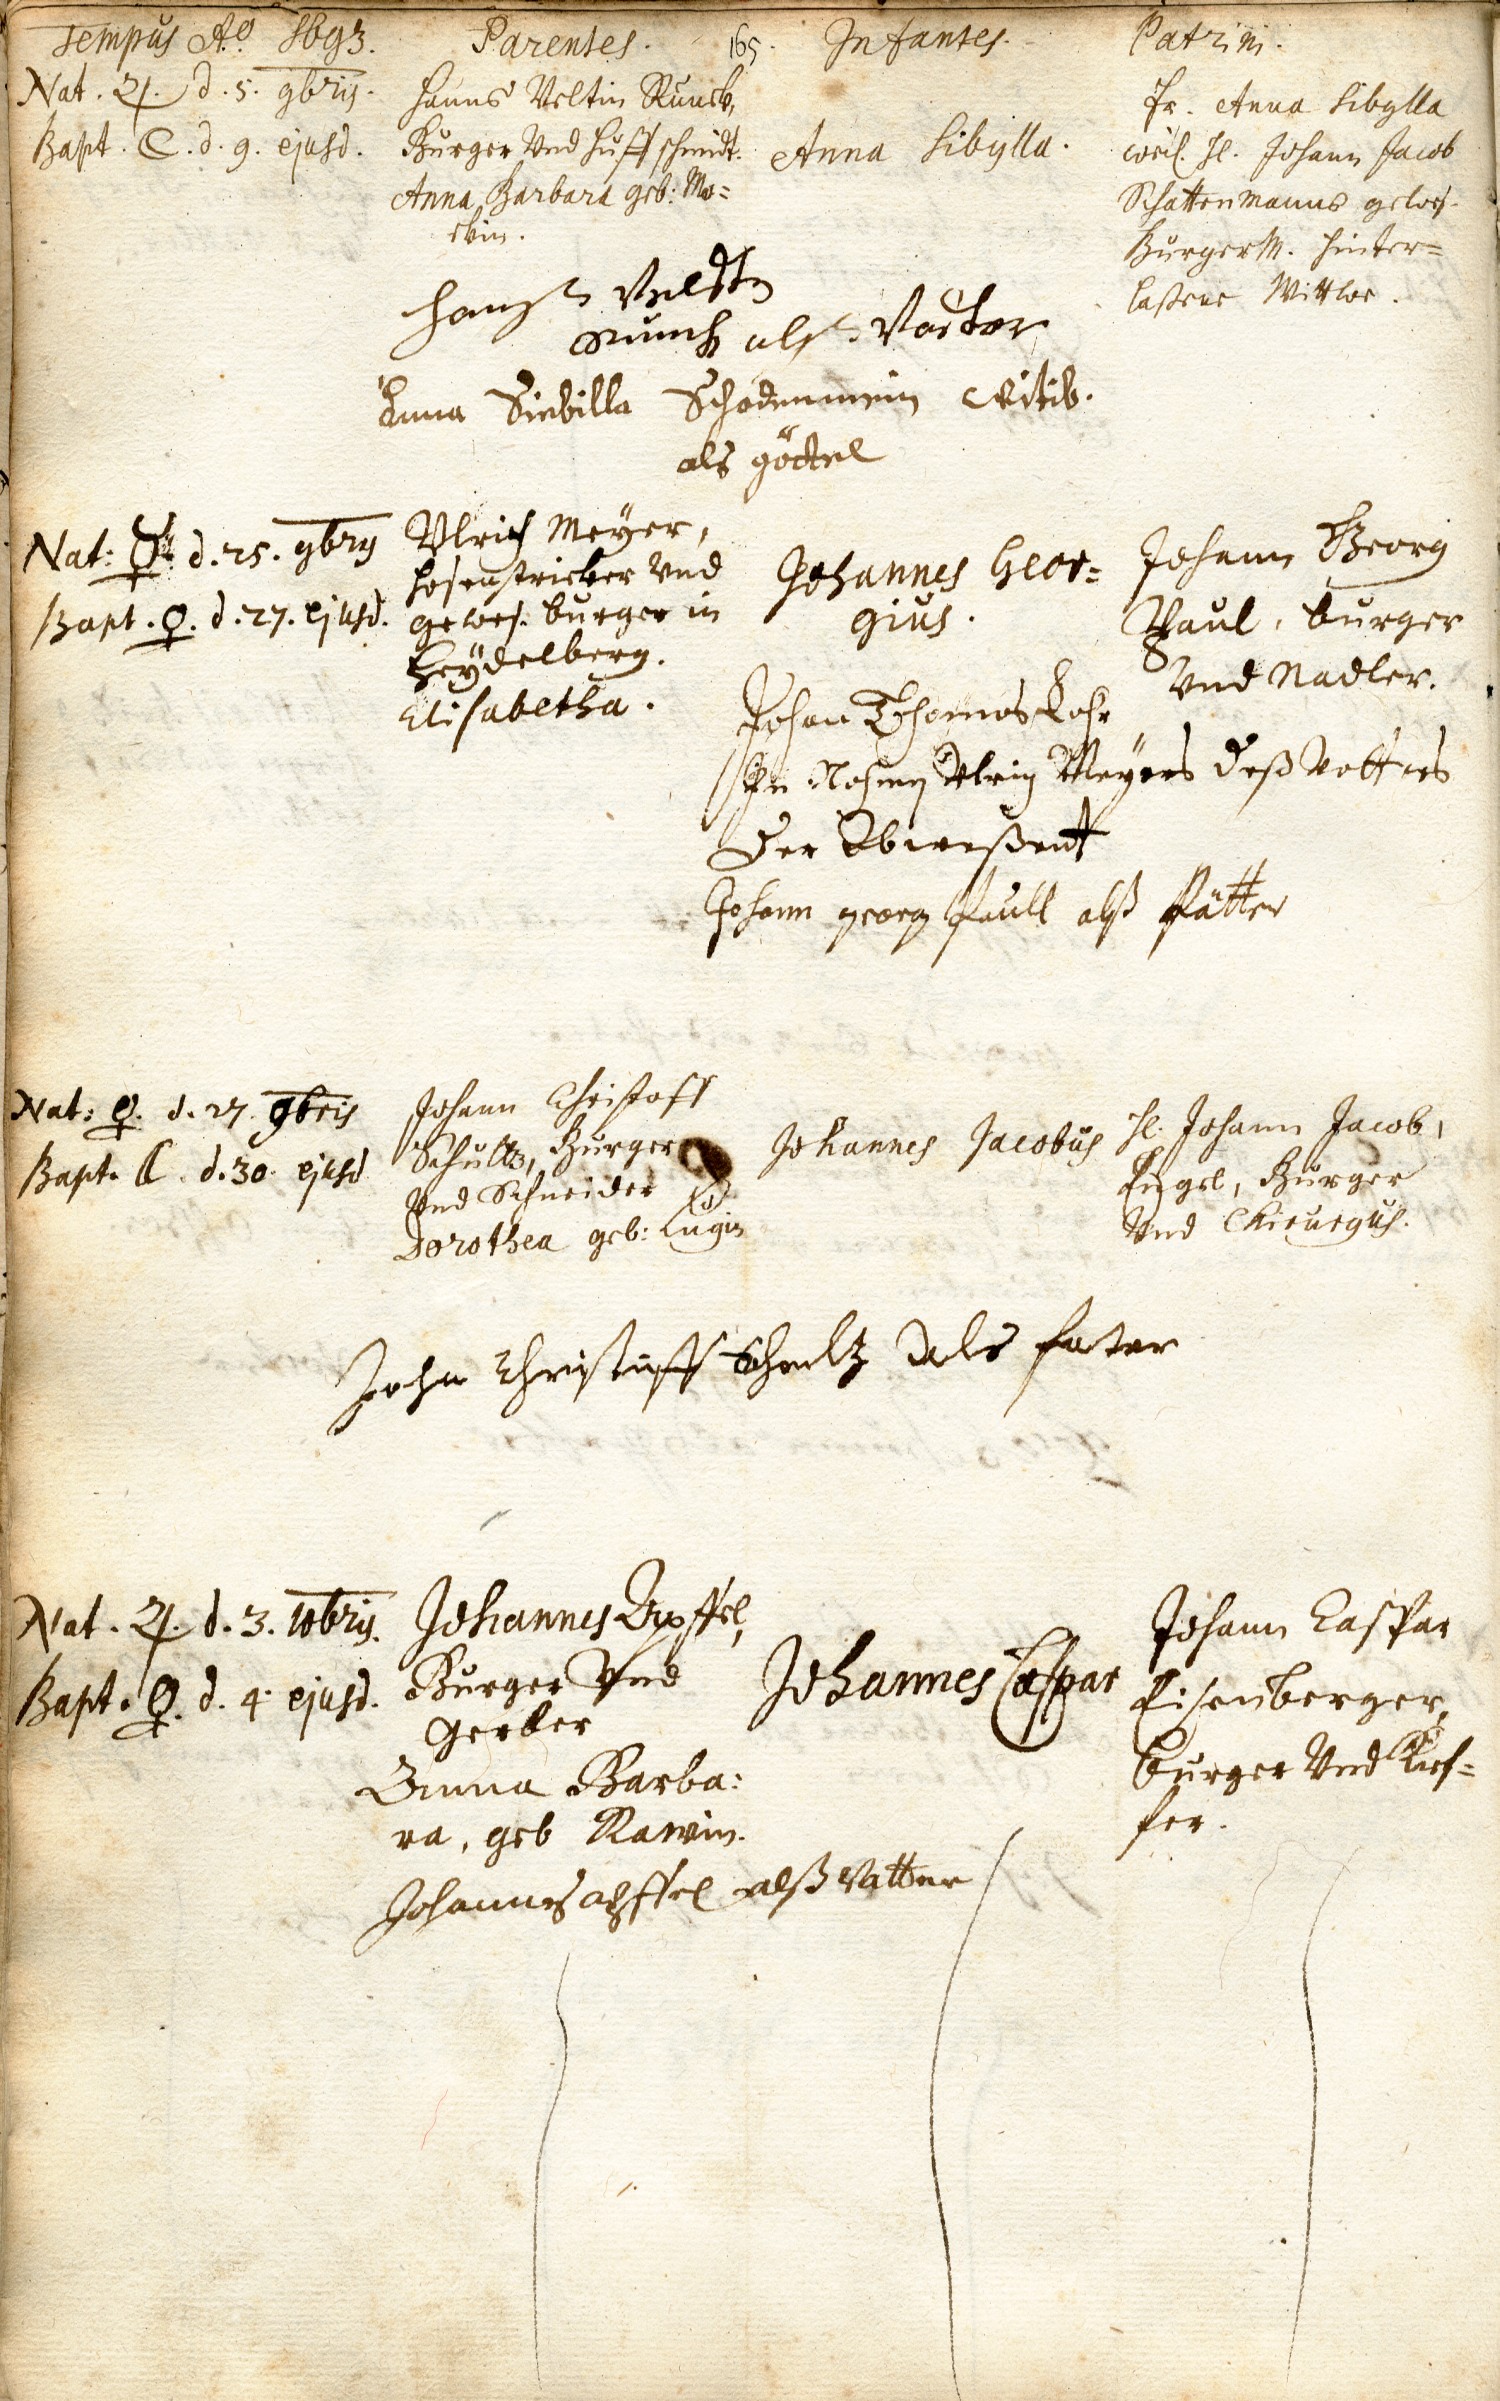 Tempus Ao. 1693. Parentes. 165. Infantes. Patrini.
Nat. ♃. d. 5. 9bris.
Bapt. ☾. d. 9. ejusd.
Hanns Veltin Runck,
Burger Vnd Huffschmidt.
Anna Barbara geb: Mo=
ckin.
Anna Sibylla.
Fr. Anna Sibylla
weil. H. Johann Jacob
Schattenmanns gewes.
BurgerM. hinter=
laßene Wittwe.
Hanß Veldtn
Runck alß Vatter
Anna Siebilla Schademenin Witib.
als göttel
Nat: d. 25. 9bris
Bapt. ♀. d. 27. ejusd.
Vlrich Meyer,
Hosenstricker Vnd
gewes. burger in
Heydelberg.
Elisabetha.
Johannes Geor=
gius.
Johann Georg
Paul, burger
Vnd Nadler.
Johan Thomas
In Nahmen Vlrig Meyers deß Vatters
Der Abweßent
Johann georg Paull alß Pätter
Nat: ♀. d. 27. 9bris
Bapt. ☾. d. 30. ejusd
Johann Christoff
Schultz, Burger
Vnd Schneider
Dorothea geb: Lugin
Johannes Jacobus
H. Johann Jacob,
Engel, Burger
Vnd Chirurgus.
John Christuff Schultz Als fater
Nat. ♃. d. 3. 10bris.
Bapt. ♀. d. 4. ejusd.
Johannes Apffel,
Burger Vnd
Gerber
Anna Barba:
ra, geb Rawin.
Johannes Caspar
Johann Caspar
Eisenberger,
burger Vnd Kief=
fer.
Johannes apffel alß Vatter